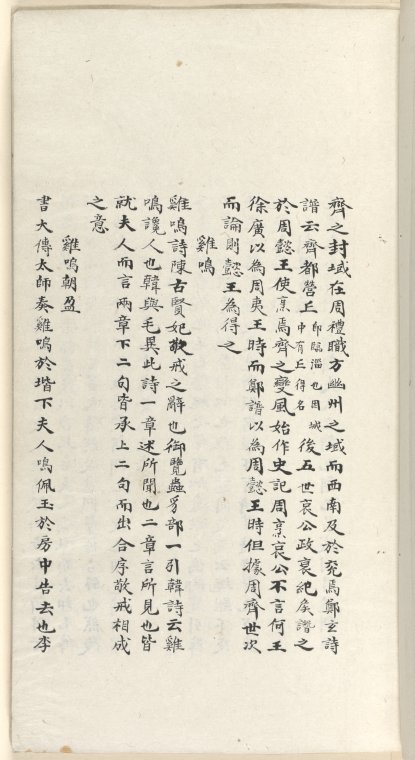 齊之封域在周禮職方幽州之域而西南及於兗焉鄭玄詩
譜云齊都營丘即臨淄也因城中有丘得名後五世哀公政衰紀侯譖之
於周懿王使烹焉齊之變風始作史記周烹哀公不言何王
徐廣以為周夷王時而鄭譜以為周懿王時但據周齊世次
而論則懿王為得之
雞鳴
雞鳴詩陳古賢妃敬戒之辭也御覽蟲豸部一引韓詩云雞
鳴讒人也韓與毛異此詩一章述所聞也二章言所見也皆
就夫人而言兩章下二句皆承上二句而出合序敬戒相成
之意
雞鳴朝盈
書大傳太師奏雞鳴於堦下夫人鳴佩玉於房中告去也李